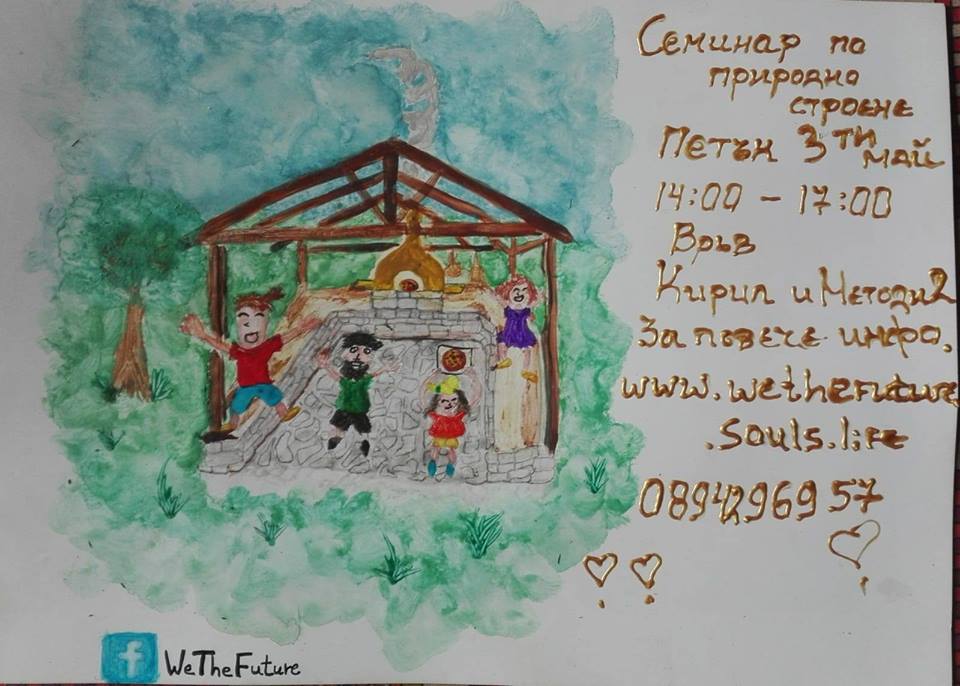 Семинар по
природно
строене
Петък 3ти
май
14:00 - 17:00
Връв
Кирил и Методи 2
За повече инфо.
www.wethefuture
.souls.life
0894296957
WeTheFuture